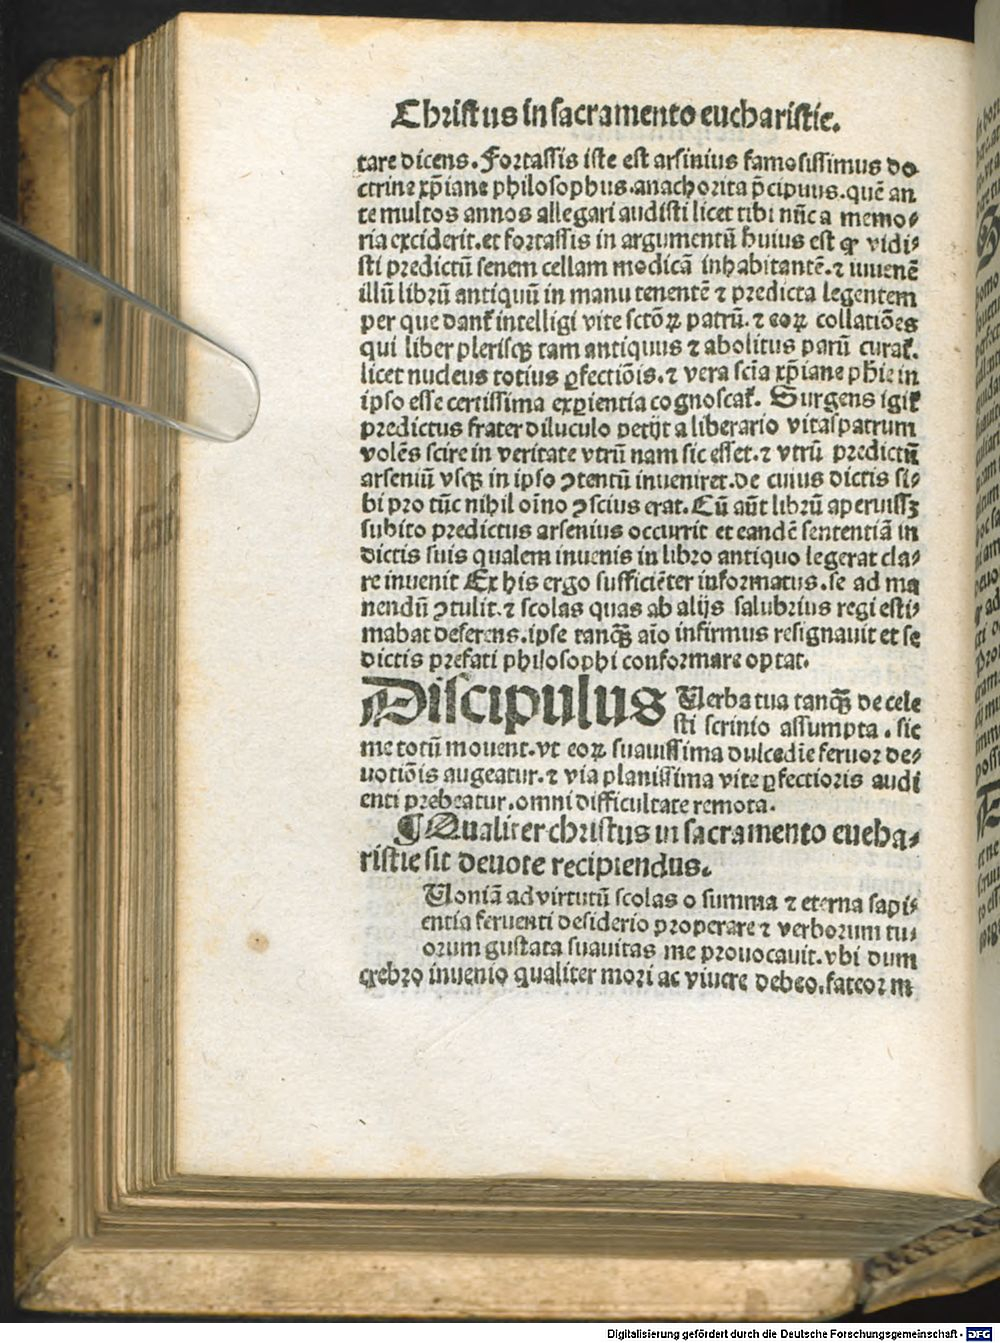 Christus in sacramento eucharistie.
tare dicens. Fortassis iste est arsinius famosissimus do-
ctrine xp̄iane philosophus. anachorita p̄cipuus. quē an
te multos annos allegari audisti licet tibi nūc a memo-
ria exciderit. et fortassis in argumentū huius est ꝙ vidi-
sti predictū senem cellam modicā inhabitantē. ⁊ iuuenē
illū librū antiquū in manu tenentē ⁊ predicta legentem
per que danť intelligi vite sctōꝝ patrū. ⁊ eoꝝ collatiões
qui liber plerisqꝫ tam antiquus ⁊ abolitus parū curať.
licet nucleus totius ꝑfectiõis. ⁊ vera scīa xp̄iane ph̄ie in
ipso esse certissima exꝑientia cognoscať. Surgens igiť
predictus frater diluculo petijt a liberario vitaſpatrum
volēs scire in veritate vtrū nam sic esset. ⁊ vtrū predictū
arseniū vsqꝫ in ipso ꝯtentū inueniret. de cuius dictis si-
bi pro tūc nihil oīno ꝯscius erat. Cū aūt librū aperuissꝫ
subito predictus arsenius occurrit et eandē sententiā in
dictis suis qualem inuenis in libro antiquo legerat cla-
re inuenit Ex his ergo sufficiēter informatus. se ad ma
nendū ꝯtulit. ⁊ scolas quas ab alijs salubrius regi esti-
mabat deserens. ipse tanqꝫ aīo infirmus resignauit et se
dictis prefati philosophi conformare optat.
Discipulus Verba tua tanqꝫ de cele
sti scrinio assumpta. sic
me totū mouent. vt eoꝝ suauissima dulcedīe feruor de-
uotiõis augeatur. ⁊ via planissima vite ꝑfectioris audi
enti prebeatur. omni difficultate remota.
¶ Qualiter christus in sacramento eucha-
ristie sit deuote recipiendus.
Voniā ad virtutū scolas o summa ⁊ eterna sapi-
entia feruenti desiderio properare ⁊ verborum tu-
orum gustata suauitas me prouocauit. vbi dum
crebro inuenio qualiter mori ac viuere debeo. fateor m
Digitalisierung gefördert durch die Deutsche Forschungsgemeinschaft - DFG